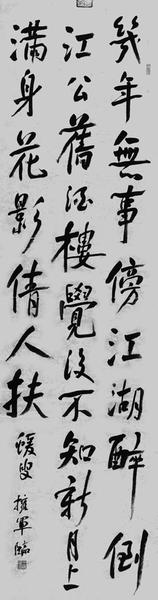 幾年無事傍江湖醉倒
江公舊酒樓覺後不知新月上
滿身花影倩人扶
蝯叟 擁軍臨